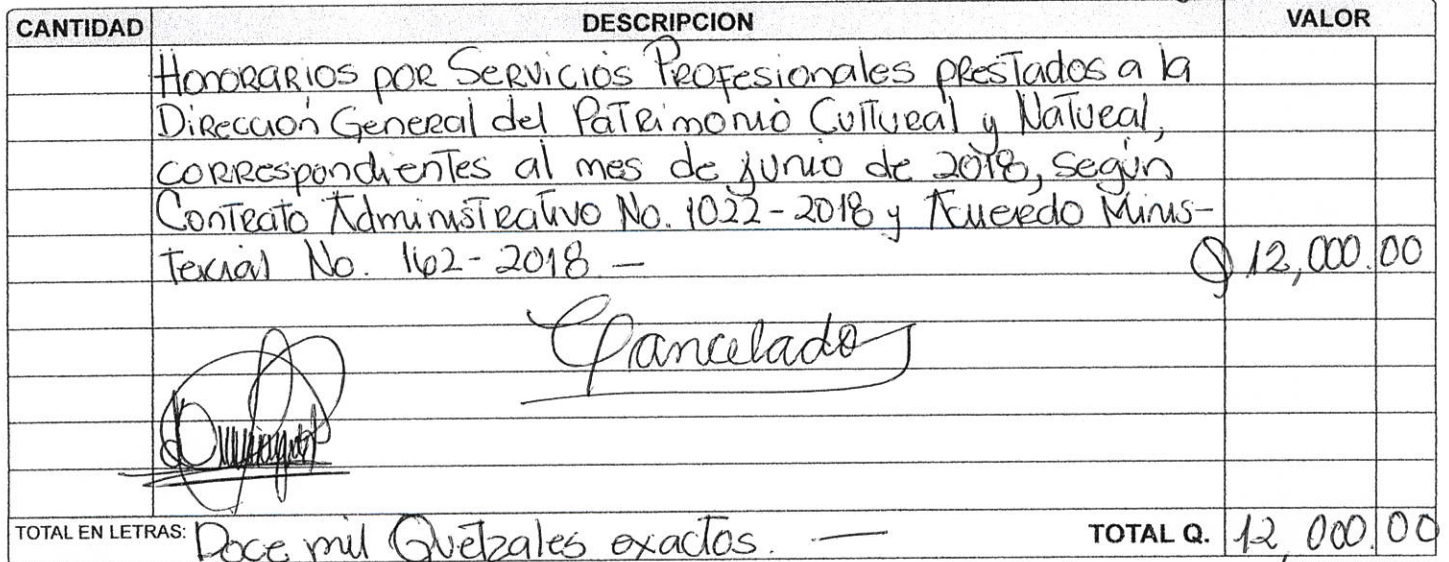 CANTIDAD DESCRIPCION VALOR
Honorarios por Servicios Profesionales prestados a la
Dirección General del Patrimonio Cultural y Natural,
correspondientes al mes de junio de 2018, según
Contrato Administrativo No. 1022-2018 y Acuerdo Minis-
terial No. 162-2018 — Q 12,000.00
Cancelado
TOTAL EN LETRAS: Doce mil Quetzales exactos. — TOTAL Q. 12,000.00